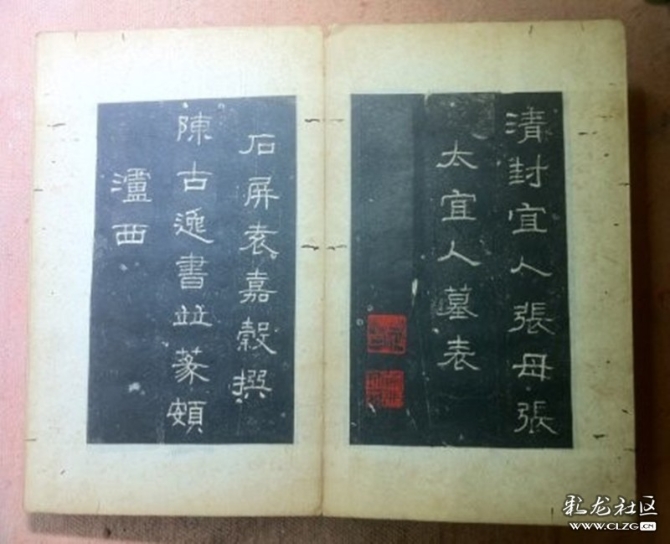 清封宜人張母張
太宜人墓表
石屏袁嘉穀撰
陳古逸書並篆額
瀘西
彩龙社区
www.CLZG.CN